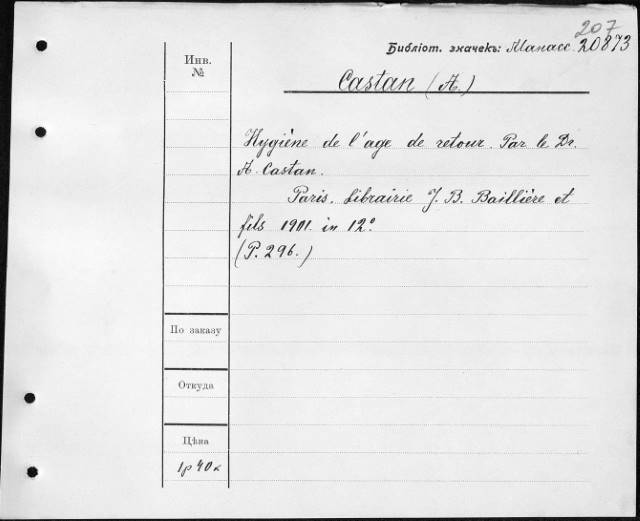 207
Библіот. значекъ: Манасс. 20873
Инв.
№
Castan (A.)
Hygiène de l'age de retour. Par le Dr.
A. Castan.
Paris. Librairie J. B. Baillière et
fils 1901. in 12°
(P. 296.)
По заказу
Откуда
Цѣна
1р 40к